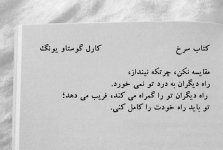 کتاب سرخ کارل گوستاو یونگ
مقایسه نکن، چرتکه نینداز،
راه دیگران به درد تو نمی خورد.
راه دیگران تو را گمراه می کند، فریب می دهد؛
تو باید راه خودت را کامل کنی.